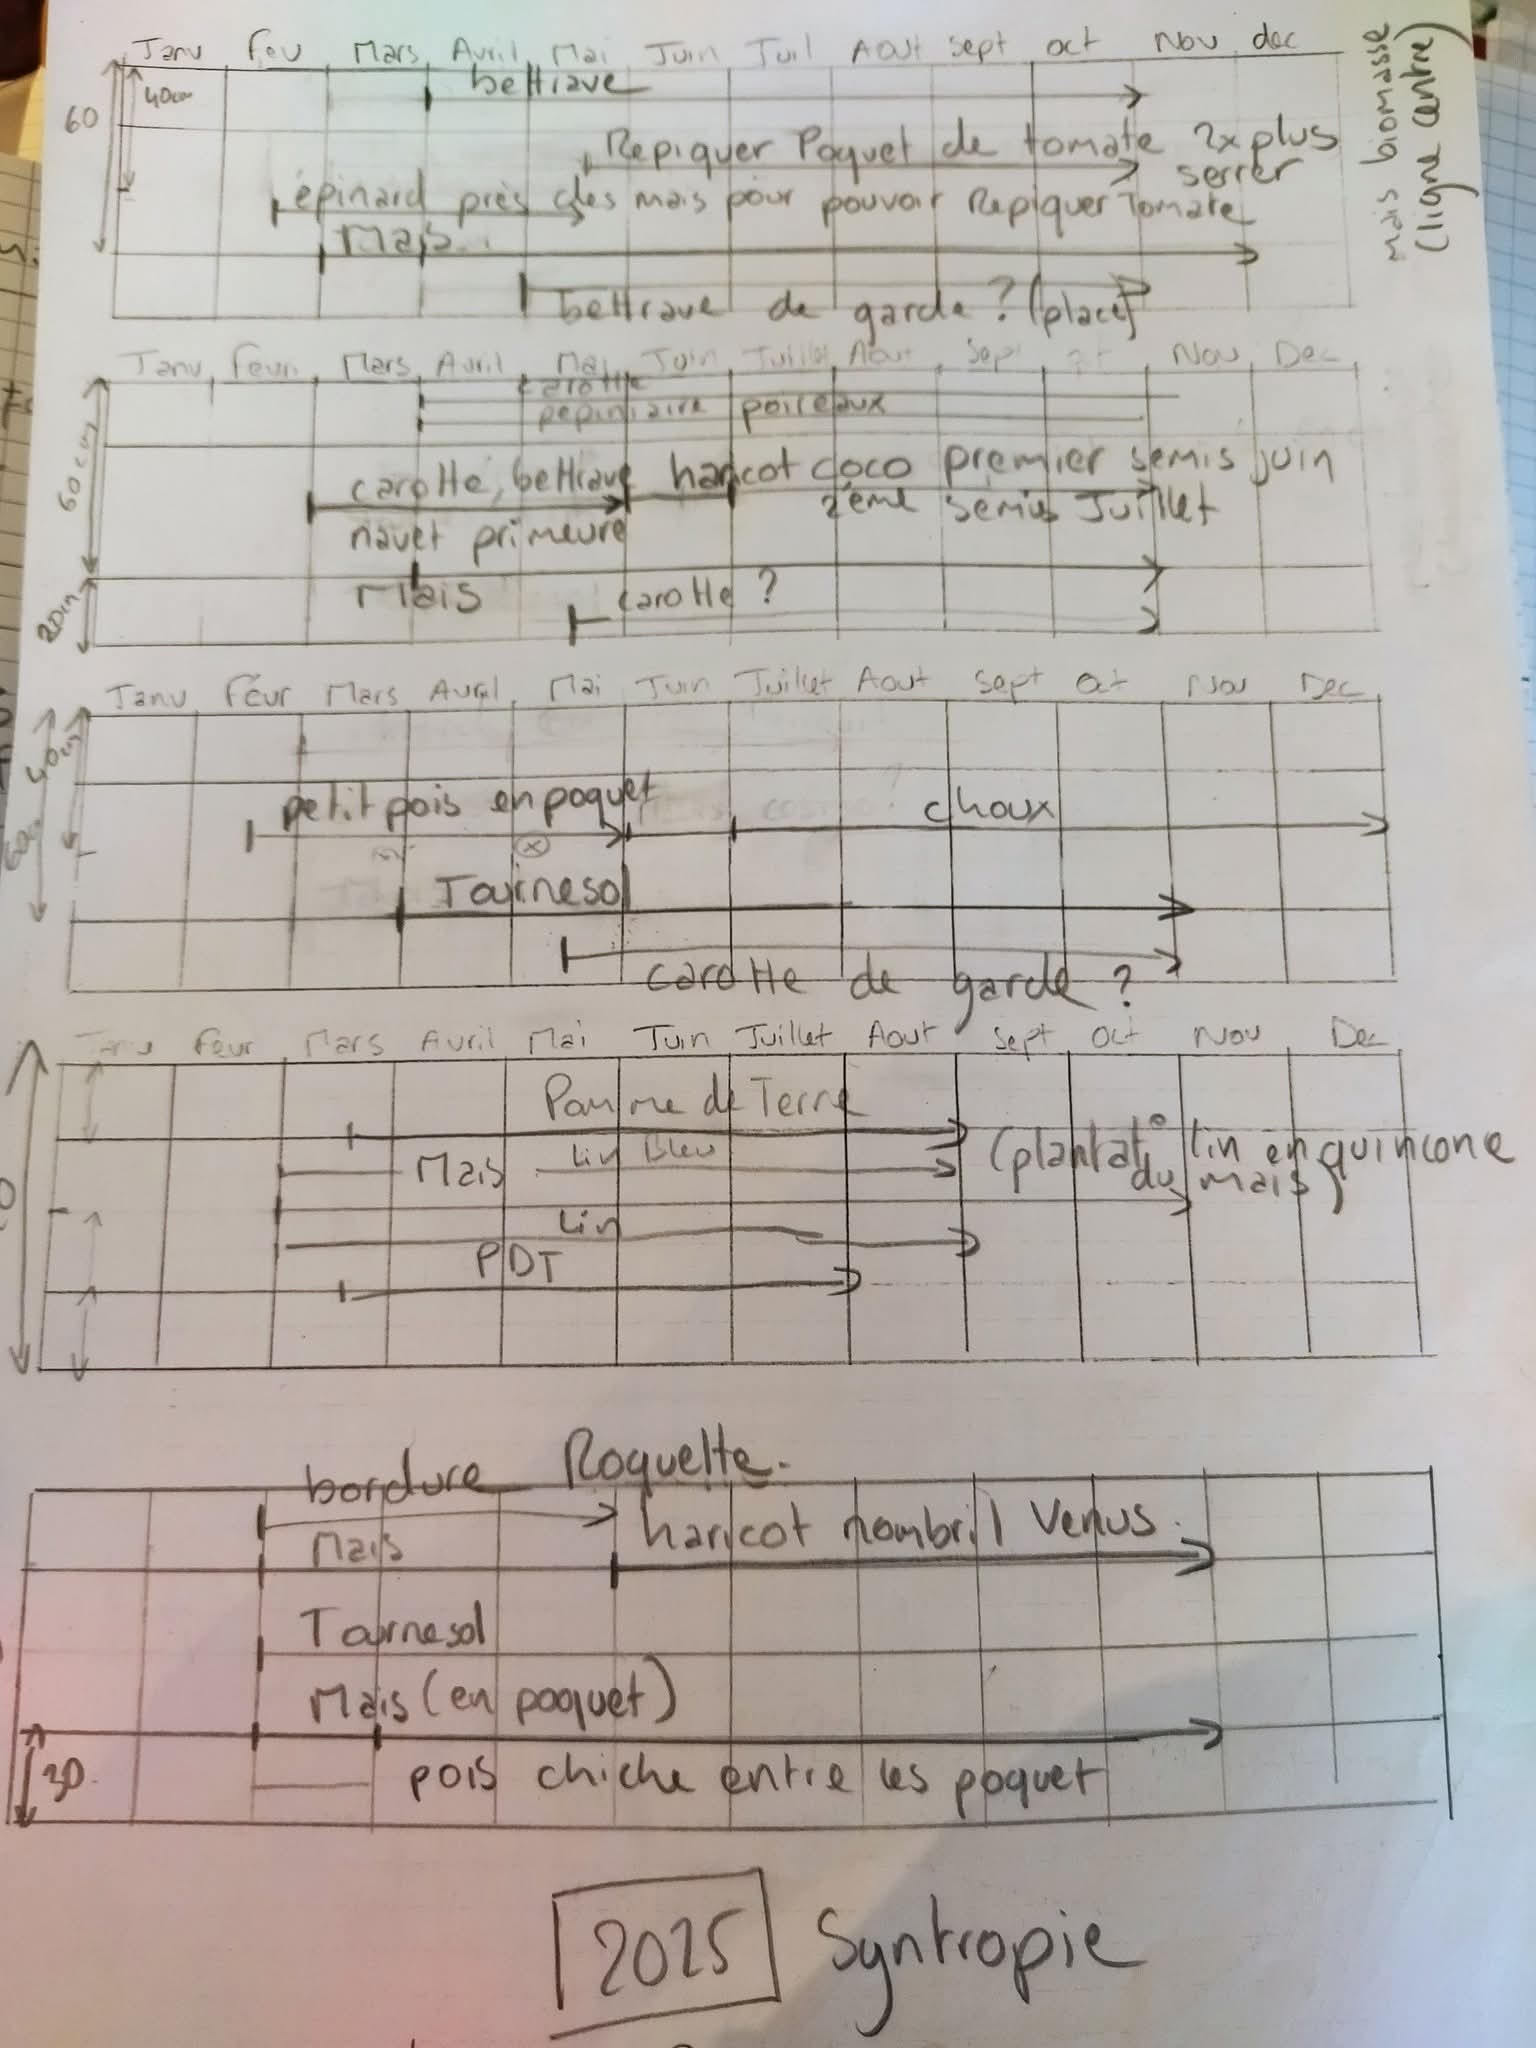 Janv Fev Mars Avril Mai Juin Juil Aout Sept oct Nov dec
40cm
bettrave
60
Repiquer Poquet de tomate 2x plus
serrer
épinard près des mais pour pouvoir Repiquer Tomate
Mais
bettrave de garde ? (place)
mais biomasse
(ligne centre)
Janv Fevri Mars Avril Mai Juin Juillet Aout Sept oct Nov Dec
carotte
pepiniaire poireaux
60cm
carotte, bettrave haricot coco premier semis juin
2ème semis Juillet
navet primeure
Mais
carotte ?
20cm
Janv Févr Mars Avril Mai Juin Juillet Aout Sept Oct Nov Dec
40cm
petit pois en poquet
choux
Tournesol
carotte de garde ?
Janv Fevr Mars Avril Mai Juin Juillet Aout Sept Oct Nov Dec
Pomme de Terre
Lin Bleu
Mais
(plantat° lin en quincone
du mais)
Lin
PDT
bordure Roquette.
Mais
haricot nombril Venus.
Tournesol
Mais (en poquet)
30
pois chiche entre les poquet
2025 Syntropie